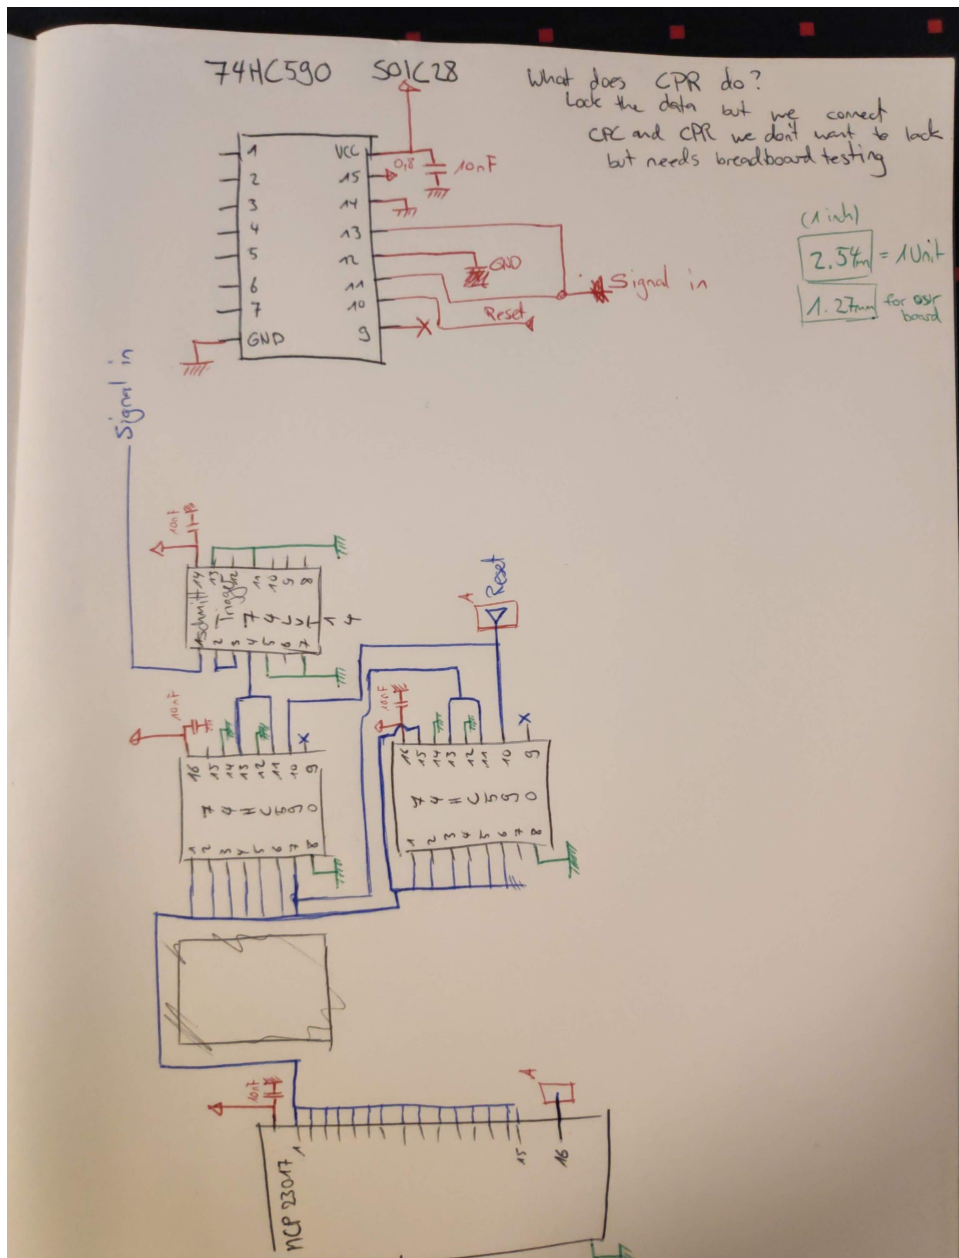 74HC590 SOIC28
What does CPR do?
Lock the data but we connect
CPC and CPR we don't want to lock
but needs breadboard testing
(1 inch)
2.54mm = 1 Unit
1.27mm for our
board
1 VCC
2 15
3 14
4 13
5 12
6 11
7 10
GND 9
10nF
GND
Signal in
Reset
Signal in
10nF
14 13 12 11 10 9 8
Schmitt
Trigger
74LV14
1 2 3 4 5 6 7
A
Reset
10nF
16 15 14 13 12 11 10 9
74HC590
1 2 3 4 5 6 7 8
10nF
16 15 14 13 12 11 10 9
74HC590
1 2 3 4 5 6 7 8
10nF
A
1 15 16
MCP 23017